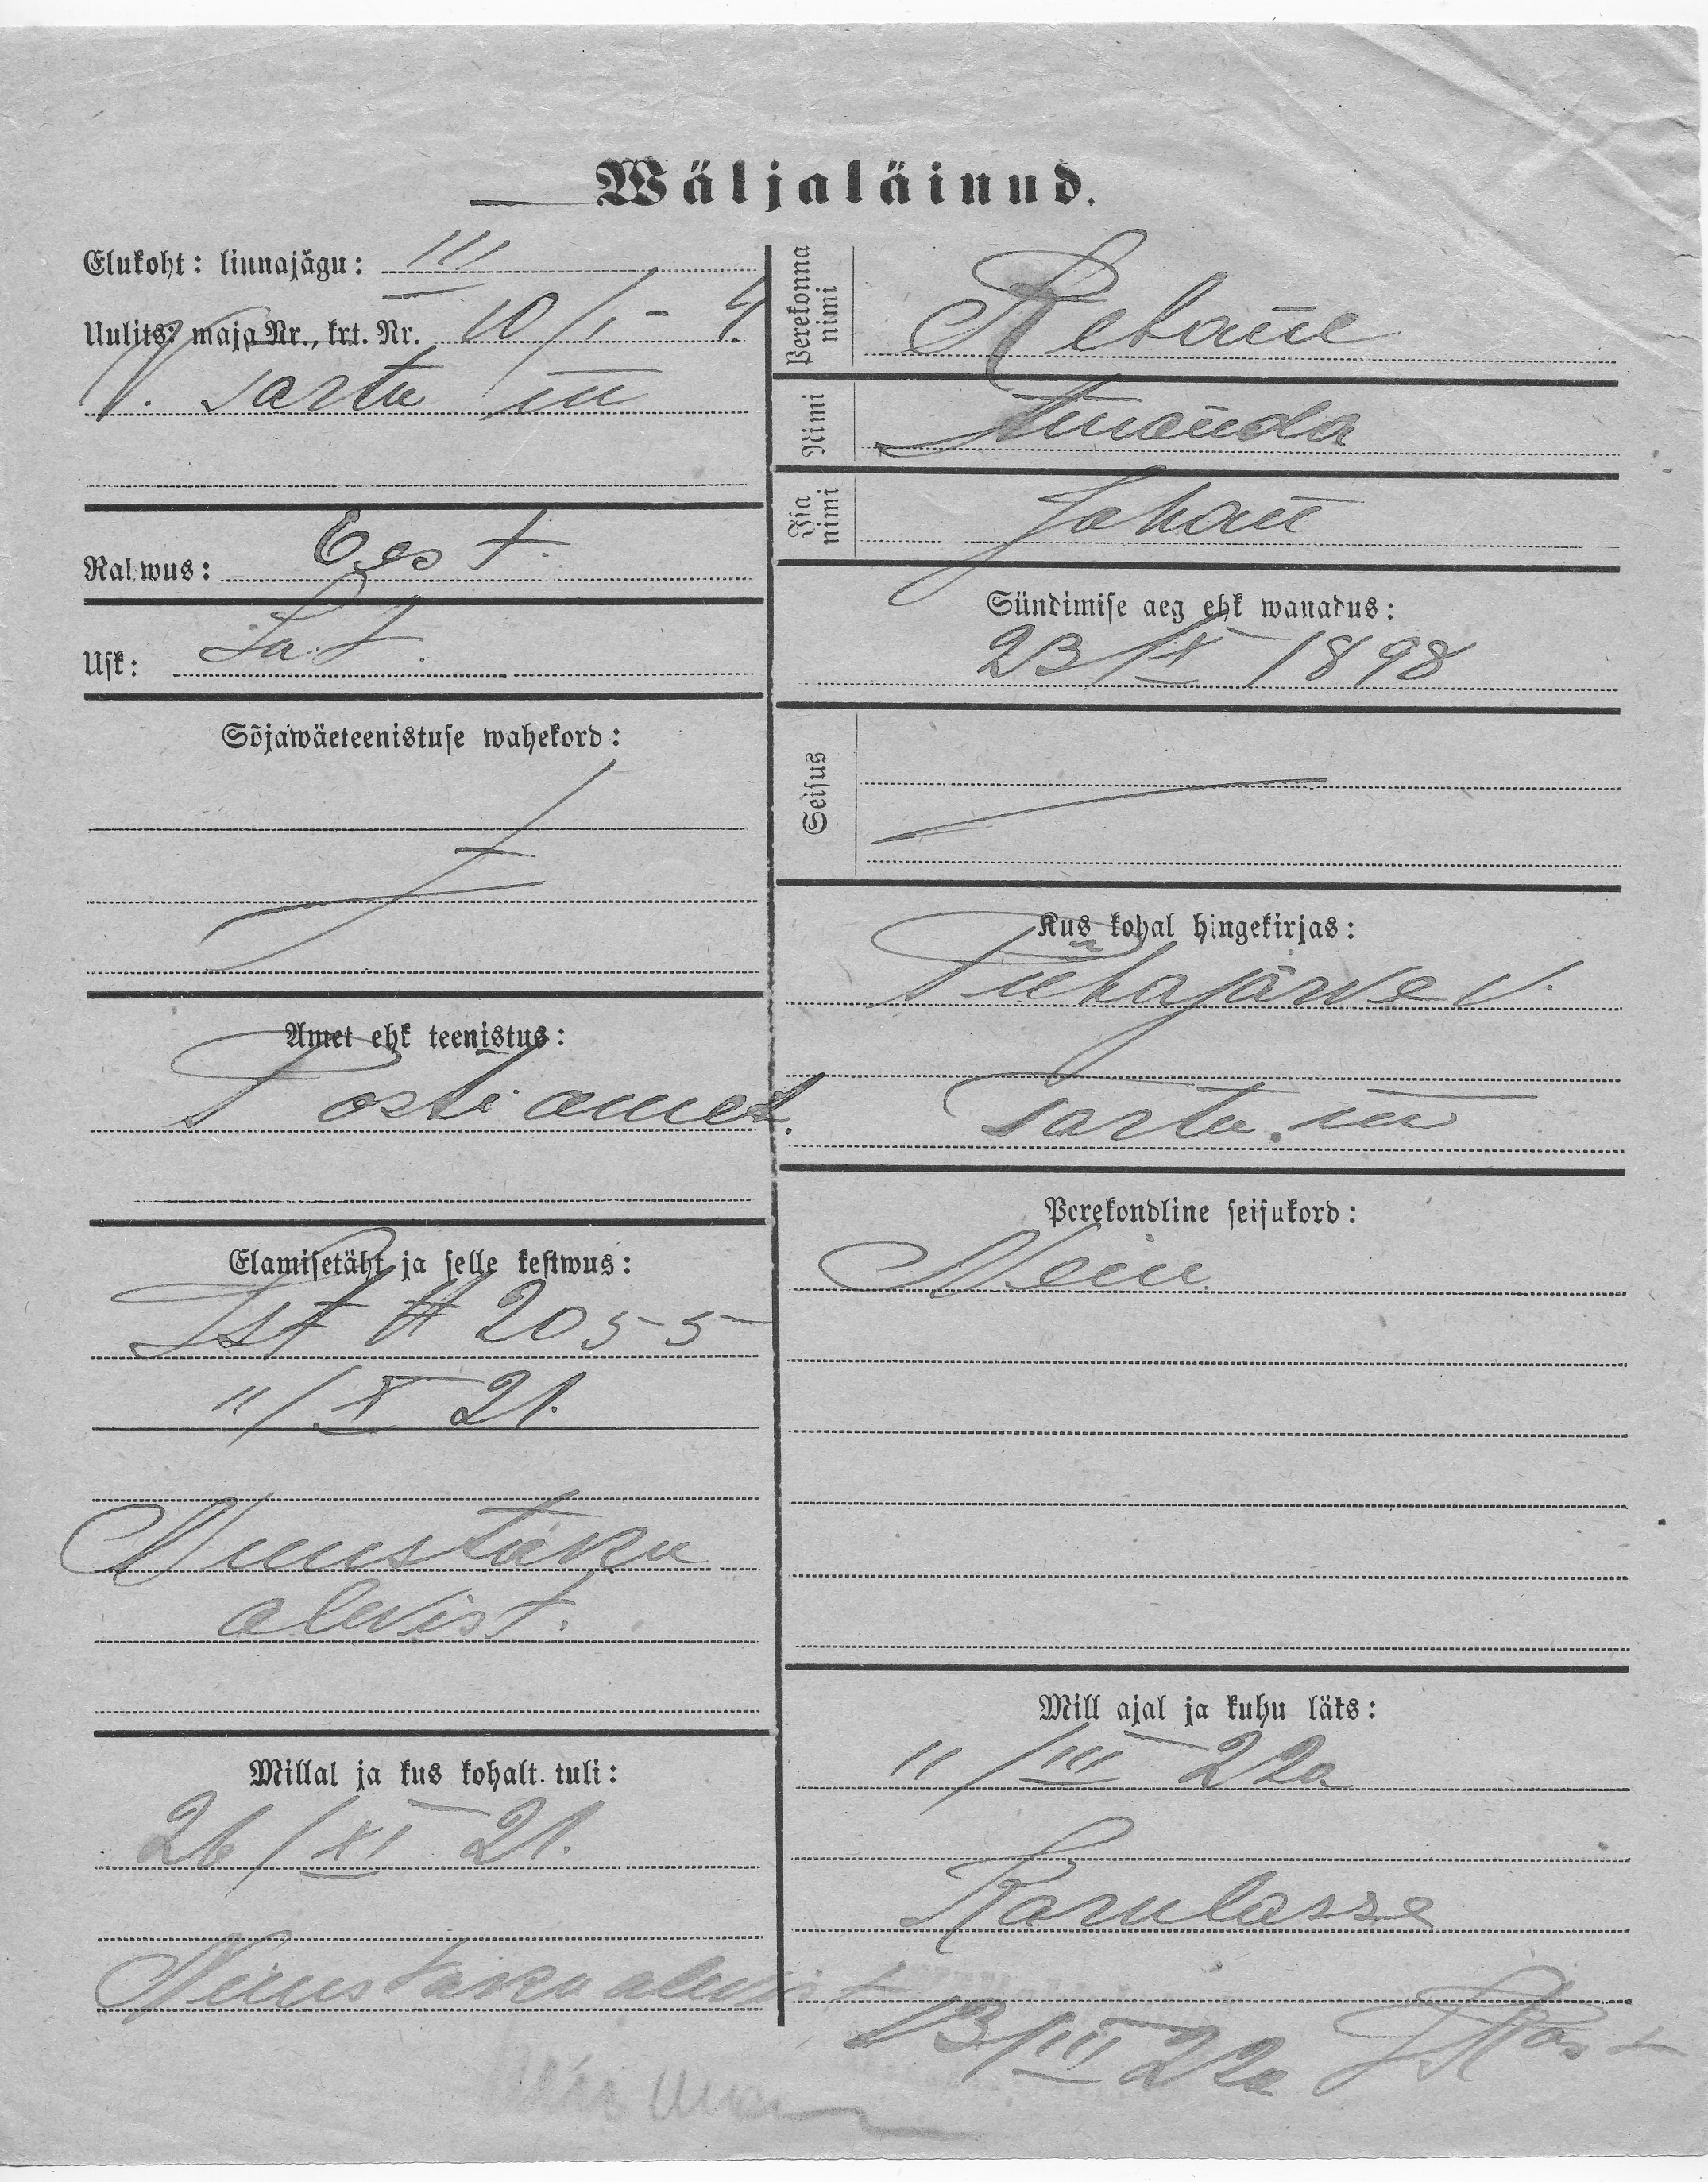 Wäljaläinud.
Elukoht: linnajägu: III
Uulits: maja Nr., krt. Nr. 10/1-4
V. Tartu m
Rahwus: Eest.
Usk: Lut.
Sõjawäeteenistuse wahekord:
Amet ehk teenistus:
Posti amet.
Elamisetäht ja selle kestwus:
Ist № 2055
11/X 21.
Nuustaku
alevist.
Millal ja kus kohalt tuli:
26/XI 21.
Nuustaku alevist
Perekonna nimi
Rebane
Nimi
Amanda
Isa nimi
Johan
Sündimise aeg ehk wanadus:
23/IX 1898
Seisus
Kus kohal hingekirjas:
Pühajärwe v.
Tartu. m
Perekondline seisukord:
Neiu
Mill ajal ja kuhu läks:
11/III 22a
Karulasse
13/III 22a